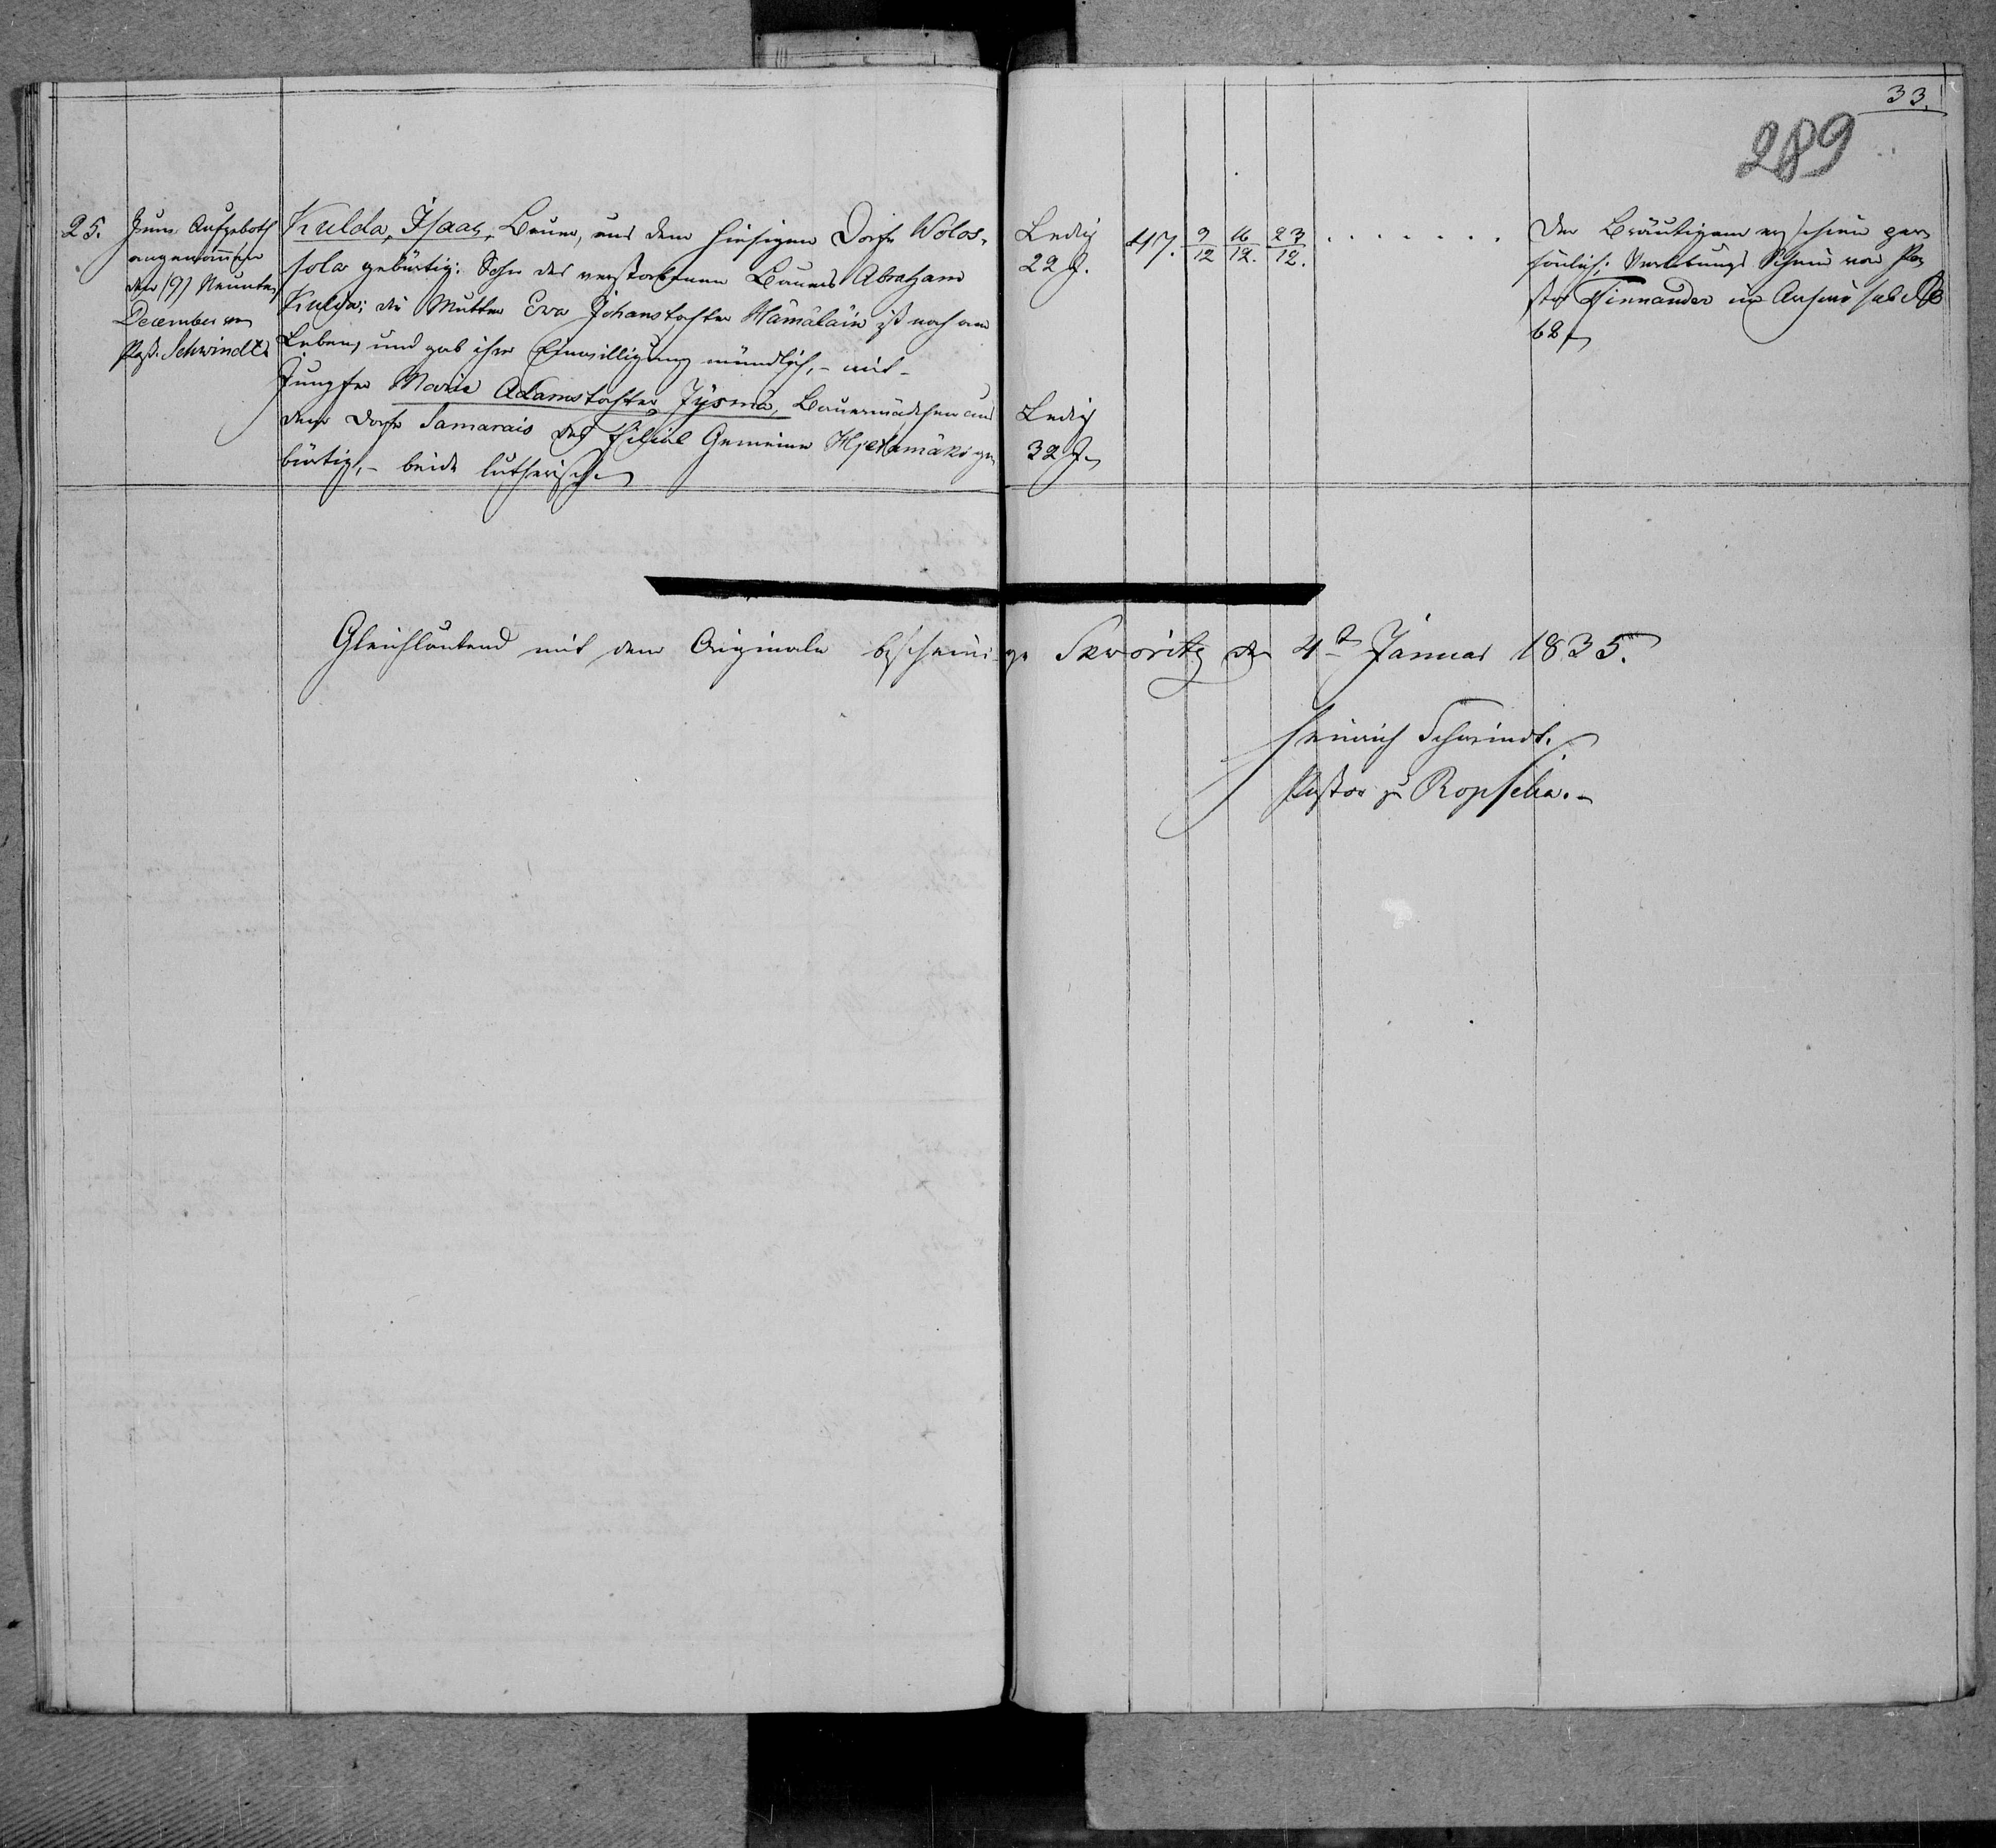 33.
289
25.
Zum Aufgeboth
angenommen
den (9) Neunten
December von
Past. Schwindt.
Kulda, Isaac, Bauer, aus dem hiesigen Dorfe Wolos-
sola gebürtig: Sohn des verstorbenen Bauers Abraham
Kulda; die Mutter Eva Johanstochter Hämäläin ist noch am
Leben, und gab ihre Einwilligung mündlich, – mit –
Jungfer Maria Adamstochter Jysmä, Bauermädchen aus
dem Dorfe Samarais des Filial Gemeine Hjetamäki ge-
bürtig, – beide lutherisch.
Ledig
22 J.
Ledig
32 J.
417.
9/12
16/12.
23/12.
. . . . . . .
Der Bräutigam erschien per-
sönlich; Verlobungs Schein von Pa-
stor Finnander im Archiv sub №
68
Gleichlautend mit dem Originale bescheinige Skworitz den 4t Januar 1835.
Heinrich Schwindt.
Pastor zu Ropscha. –